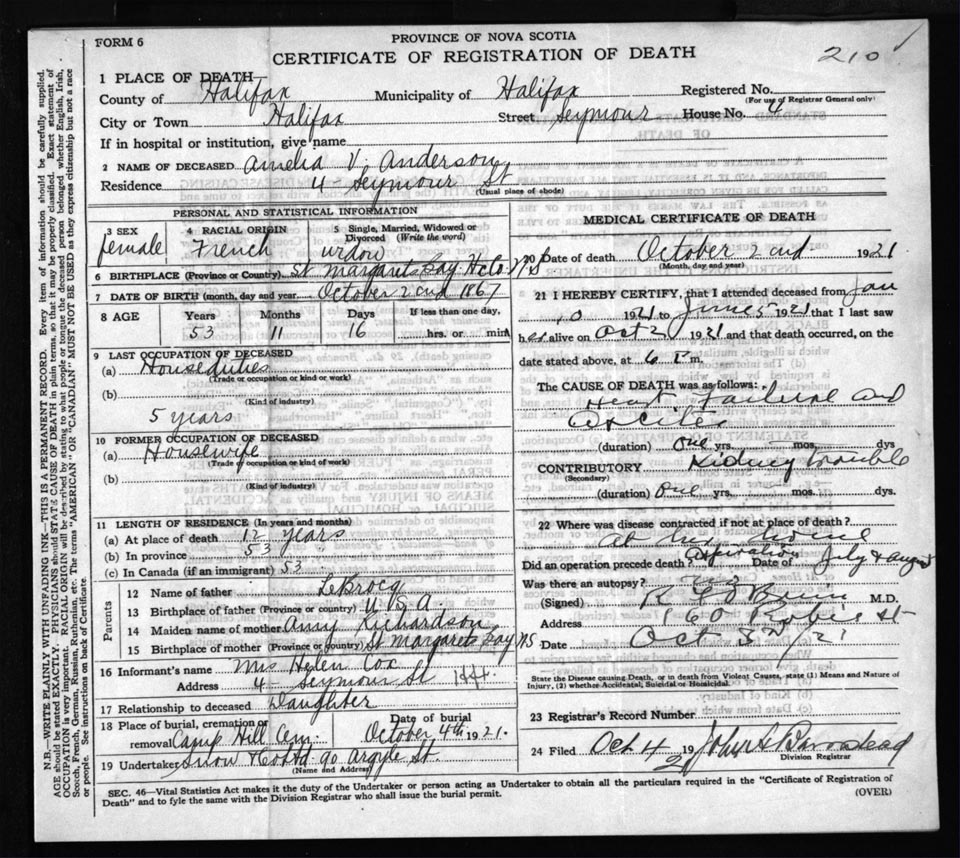 FORM 6
PROVINCE OF NOVA SCOTIA
CERTIFICATE OF REGISTRATION OF DEATH
210
1 PLACE OF DEATH
County of Halifax Municipality of Halifax Registered No.
(For use of Registrar General only)
City or Town Halifax Street Seymour House No. 4
If in hospital or institution, give name
2 NAME OF DECEASED Amelia V. Anderson
Residence 4 - Seymour St
(Usual place of abode)
PERSONAL AND STATISTICAL INFORMATION
3 SEX female
4 RACIAL ORIGIN French
5 Single, Married, Widowed or Divorced (Write the word) Widow
6 BIRTHPLACE (Province or Country) St Margarets Bay Hx Co NS
7 DATE OF BIRTH (month, day and year) October 2nd 1867
8 AGE Years 53 Months 11 Days 16 If less than one day, hrs. or min.
9 LAST OCCUPATION OF DECEASED
(a) Houseduties
(Trade or occupation or kind or work)
(b)
(Kind of industry)
5 years
10 FORMER OCCUPATION OF DECEASED
(a) Housewife
(Trade or occupation or kind of work)
(b)
(Kind of industry)
11 LENGTH OF RESIDENCE (In years and months)
(a) At place of death 12 years
(b) In province 53
(c) In Canada (if an immigrant) 53
Parents
12 Name of father LeBrocq
13 Birthplace of father (Province or country) U.S.A.
14 Maiden name of mother Amy Richardson
15 Birthplace of mother (Province or country) St Margarets Bay NS
16 Informant's name Mrs Helen Cox
Address 4 - Seymour St
17 Relationship to deceased Daughter
18 Place of burial, cremation or removal Camp Hill Cem. Date of burial October 4th 1921.
19 Undertaker Snow & Co Ltd. 90 Argyle St.
(Name and Address)
MEDICAL CERTIFICATE OF DEATH
20 Date of death October 2nd 1921
(Month, day and year)
21 I HEREBY CERTIFY, that I attended deceased from Jan
10 1921 to June 5 1921 that I last saw
her alive on Oct 2 1921 and that death occurred, on the
date stated above, at 6 P.m.
The CAUSE OF DEATH was as follows:
Heart failure and
(duration) One yrs. mos. dys
CONTRIBUTORY Kidney trouble
(Secondary)
(duration) One yrs. mos. dys.
22 Where was disease contracted if not at place of death?
At her home
Did an operation precede death? Operation Date of July & August
Was there an autopsy? no
(Signed) M.D.
Address 160 Robie St
Date Oct 3rd, 21
State the Disease causing Death, or in death from Violent Causes, state (1) Means and Nature of
Injury, (2) whether Accidental, Suicidal or Homicidal.
23 Registrar's Record Number
24 Filed Oct 4 1921 John A Barnstead
Division Registrar
SEC. 46—Vital Statistics Act makes it the duty of the Undertaker or person acting as Undertaker to obtain all the particulars required in the "Certificate of Registration of
Death" and to fyle the same with the Division Registrar who shall issue the burial permit.
(OVER)
N.B.—WRITE PLAINLY WITH UNFADING INK—THIS IS A PERMANENT RECORD. Every item of information should be carefully supplied.
AGE should be stated EXACTLY. PHYSICIANS should STATE CAUSE OF DEATH in plain terms, so that it may be properly classified. Exact statement of
OCCUPATION is very important. RACIAL ORIGIN will be described by stating to what people or tongue the deceased person belonged whether English, Irish,
Scotch, French, German, Russian, Ruthenian, etc. The terms "AMERICAN" OR "CANADIAN" MUST NOT BE USED as they express citizenship but not a race
or people. See instructions on back of Certificate.